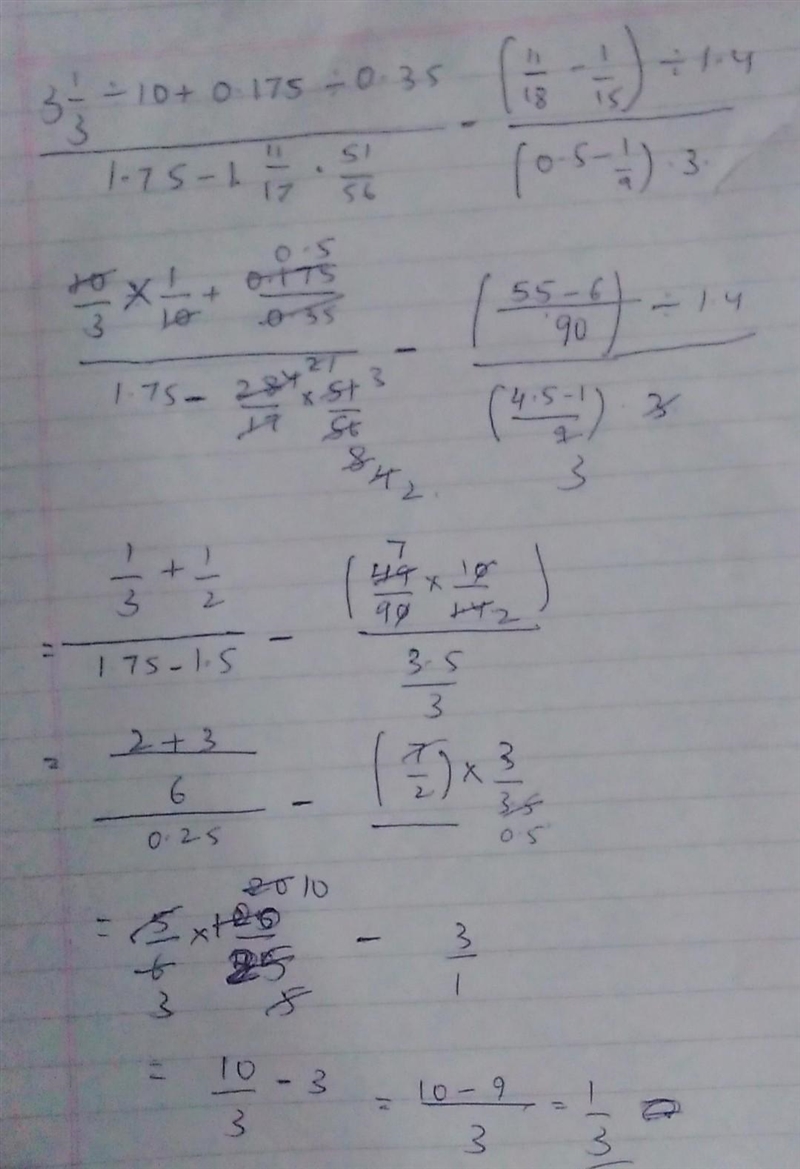 3 1/3 ÷ 10 + 0.175 ÷ 0.35 / 1.75 - 1 11/17 · 51/56 - (11/18 - 1/15) ÷ 1.4 / (0.5 - 1/9) · 3
10/3 × 1/10 + 0.175/0.35 0.5 / 1.75 - 28/17 × 51/56 - ((55-6)/90) ÷ 1.4 / ((4.5-1)/9) · 3
1/3 + 1/2 / 1.75 - 1.5 - (49/90 × 10/14) / 3.5/3
= 2+3 / 6 / 0.25 - (7/2) × 3/3.5 0.5
= 5/6 × 100/25 - 3/1
= 10/3 - 3 = 10-9/3 = 1/3